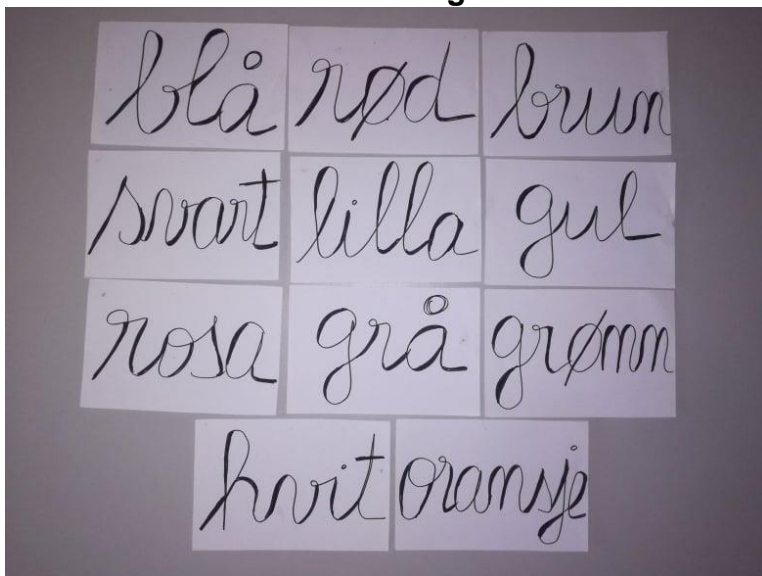 blå rød brun
svart lilla gul
rosa grå grønn
hvit oransje